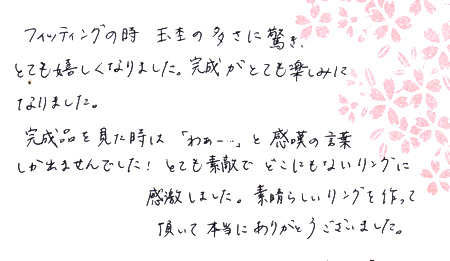 フィッティングの時 玉杢の多さに驚き、
とても嬉しくなりました。完成がとても楽しみに
なりました。
完成品を見た時は「わぁー…」と感嘆の言葉
しか出ませんでした！とても素敵でどこにもないリングに
感激しました。素晴らしいリングを作って
頂いて本当にありがとうございました。